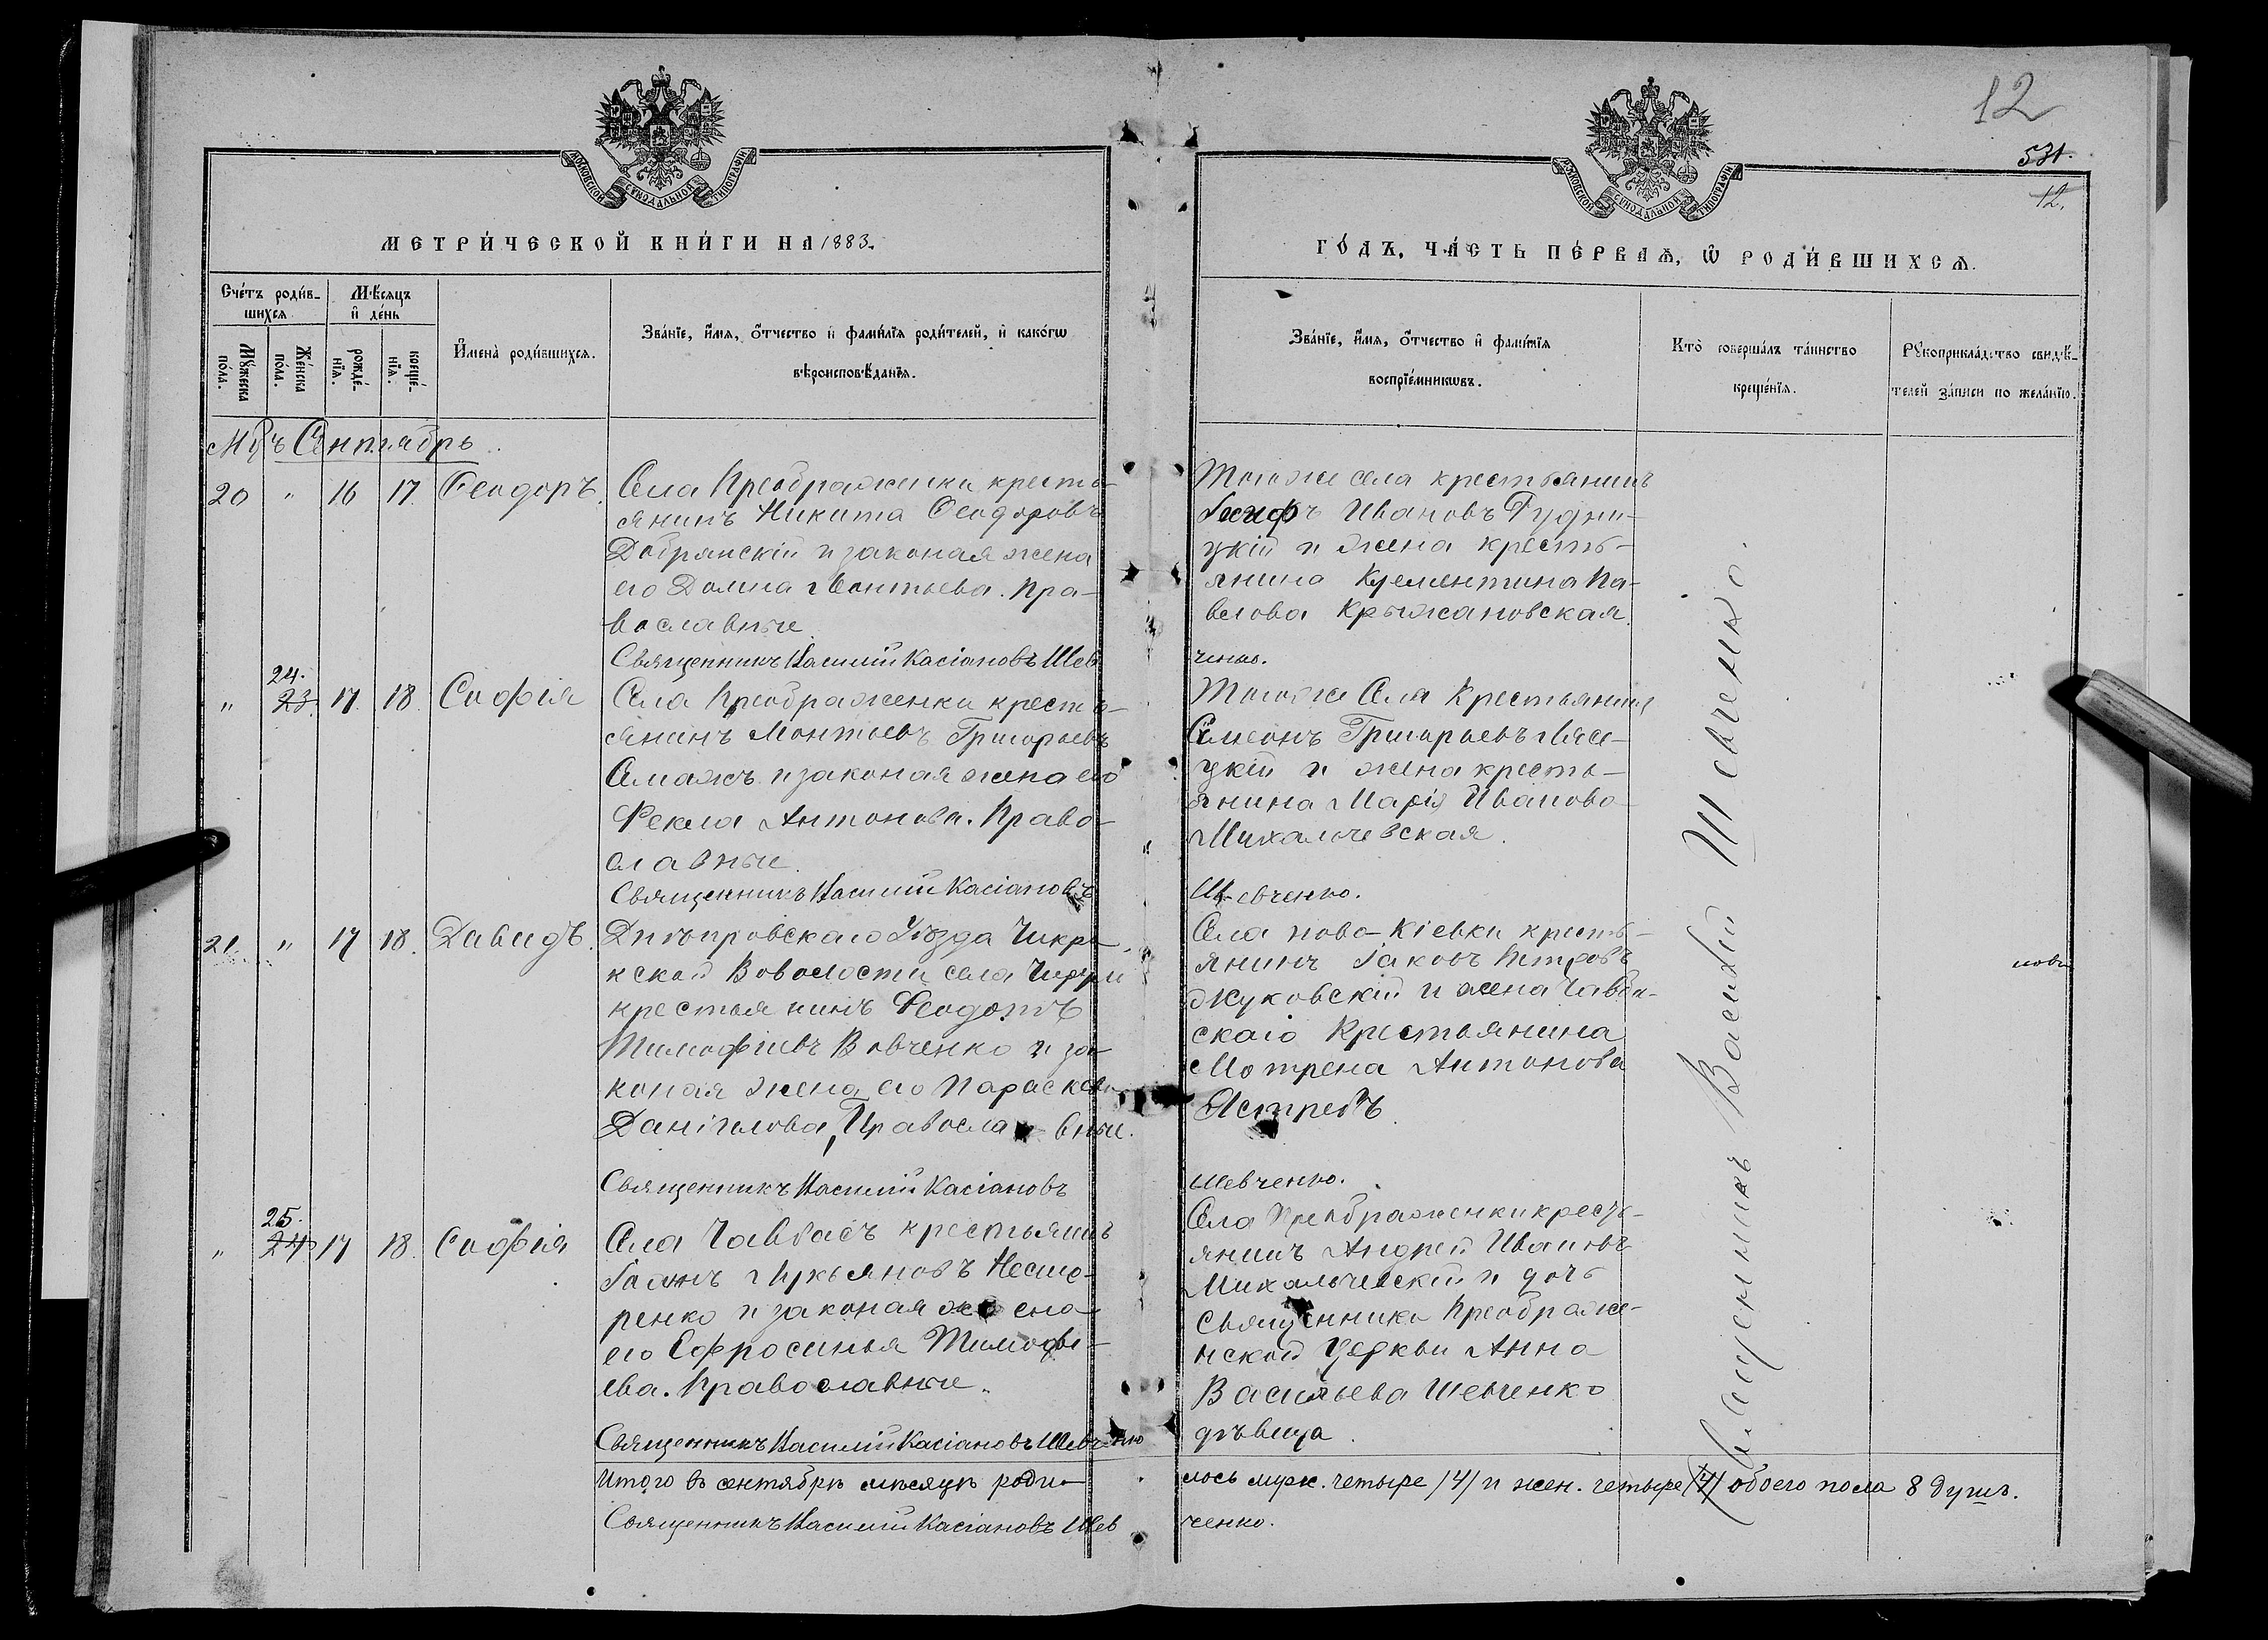 12
531.
12.
МОСКОВСКОЙ СѴНОДАЛЬНОЙ ТИПОГРАФІИ
МОСКОВСКОЙ СѴНОДАЛЬНОЙ ТИПОГРАФІИ
МЕТРИ́ЧЕСКОЙ КНИ́ГИ НА 1883.
ГО́ДЪ, ЧА́СТЬ ПЕ́РВАѦ, Ѡ҆ РОДИ́ВШИХСѦ.
Сче́тъ роди́в-
шихсѧ
Мꙋ́жеска
по́ла.
Же́нска
по́ла.
Мѣ́сѧцъ
и҆ де́нь
рожде́-
нїѧ.
креще́-
нїѧ.
И҆мена̀ роди́вшихсѧ.
Зва́нїе, и҆́мѧ, о҆́тчество и҆ фами́лїѧ роди́телей, и҆ како́гѡ
вѣроисповѣ́данїѧ.
Зва́нїе, и҆́мѧ, о҆́тчество и҆ фами́лїѧ
воспрїе́мникѡвъ.
Кто̀ соверша́лъ та́инство
креще́нїѧ.
Рꙋкоприкла́дство свидѣ́-
телей за́писи по жела́нїю.
Мцъ Сентябрь
20 " 16 17. Ѳеодоръ.
Села Преображенки кресть-
янинъ Никита Ѳеодоровъ
Добрянскій и законая жена
его Домна Леонтьева. Пра-
вославные.
Священникъ Василій Касіановъ Шев
Тогоже села крестьянинъ
Іосифъ Ивановъ Рудни-
цкій и жена кресть-
янина Клементина Па-
влова Крыжановская.
ченко.
" 24. 23. 17. 18. Софія
Села Преображенки кресть-
янинъ Леонтьевъ Григорьевъ
Семажъ и законая жена его
Фекла Антонова. Право-
славные.
Священникъ Василій Касіановъ
Тогоже Села Крестьянинъ
Симеонъ Григорьевъ
цкій и жена кресть-
янина Марія Иванова
Михальчевская.
Шевченко.
21. " 17 18. Давидъ.
Днѣпровскаго Уѣзда
кской Воволости села
крестьянинъ Ѳеодотъ
Тимофіевъ Вовченко и за-
коная жена его Параскева
Даніилова, Православные.
Священникъ Василій Касіановъ
Села ново-Кіевки кресть-
янинъ Іаковъ Петровъ
Жуковскій и жена
скаго Крестьянина
Мотрена Антонова
Ястребъ
Шевченко.
" 25. 24. 17 18. Софія
Села Чавбасъ крестьянинъ
Іоанъ Лукьяновъ Несте-
ренко и законая жена
его Ефросинья Тимофі-
ева. Православные.
Священникъ Василій Касіановъ Шевченко
Села Преображенки кресть-
янинъ Андрей Ивановъ
Михальчевскій и дочь
священника Преображе-
нской Церкви Анна
Васильева Шевченко
дѣвица.
Священникъ Василій Шевченко.
Итого въ сентябрѣ мѣсяцѣ роди-
лось муж. четыре /4/ и жен. четыре /4/ обоего пола 8 душъ.
Священникъ Василій Касіановъ Шев
ченко.